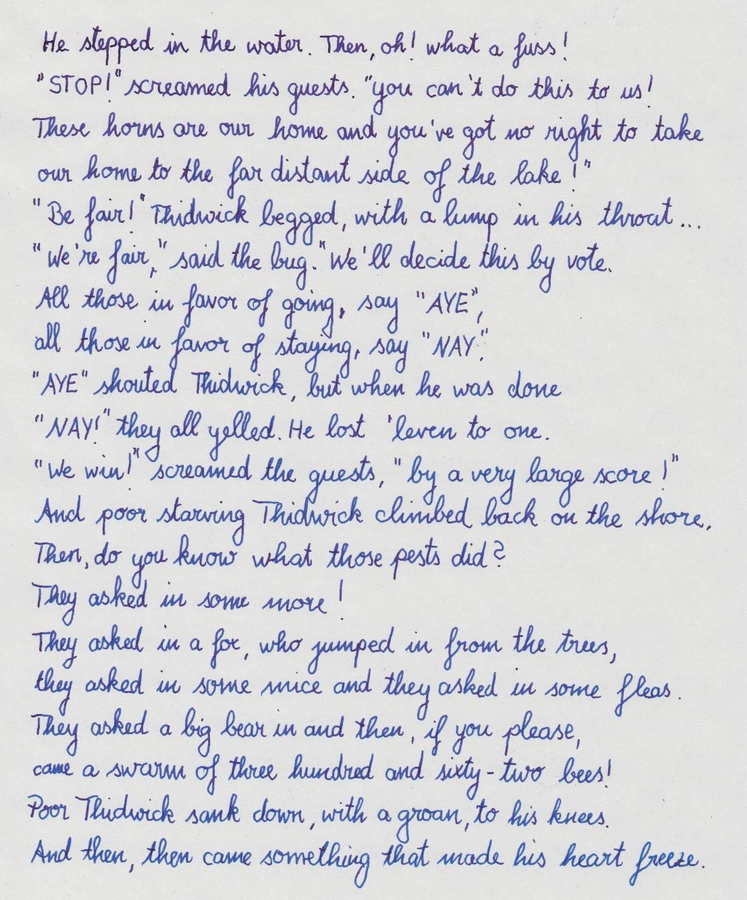 He stepped in the water. Then, oh! what a fuss!
"STOP!" screamed his guests. "you can't do this to us!
These horns are our home and you've got no right to take
our home to the far distant side of the lake!"
"Be fair!" Thidwick begged, with a lump in his throat...
"We're fair," said the bug. "We'll decide this by vote.
All those in favor of going, say "AYE",
all those in favor of staying, say "NAY".
"AYE" shouted Thidwick, but when he was done
"NAY!" they all yelled. He lost 'leven to one.
"We win!" screamed the guests, "by a very large score!"
And poor starving Thidwick climbed back on the shore.
Then, do you know what those pests did?
They asked in some more!
They asked in a fox, who jumped in from the trees,
they asked in some mice and they asked in some fleas.
They asked a big bear in and then, if you please,
came a swarm of three hundred and sixty-two bees!
Poor Thidwick sank down, with a groan, to his knees.
And then, then came something that made his heart freeze.